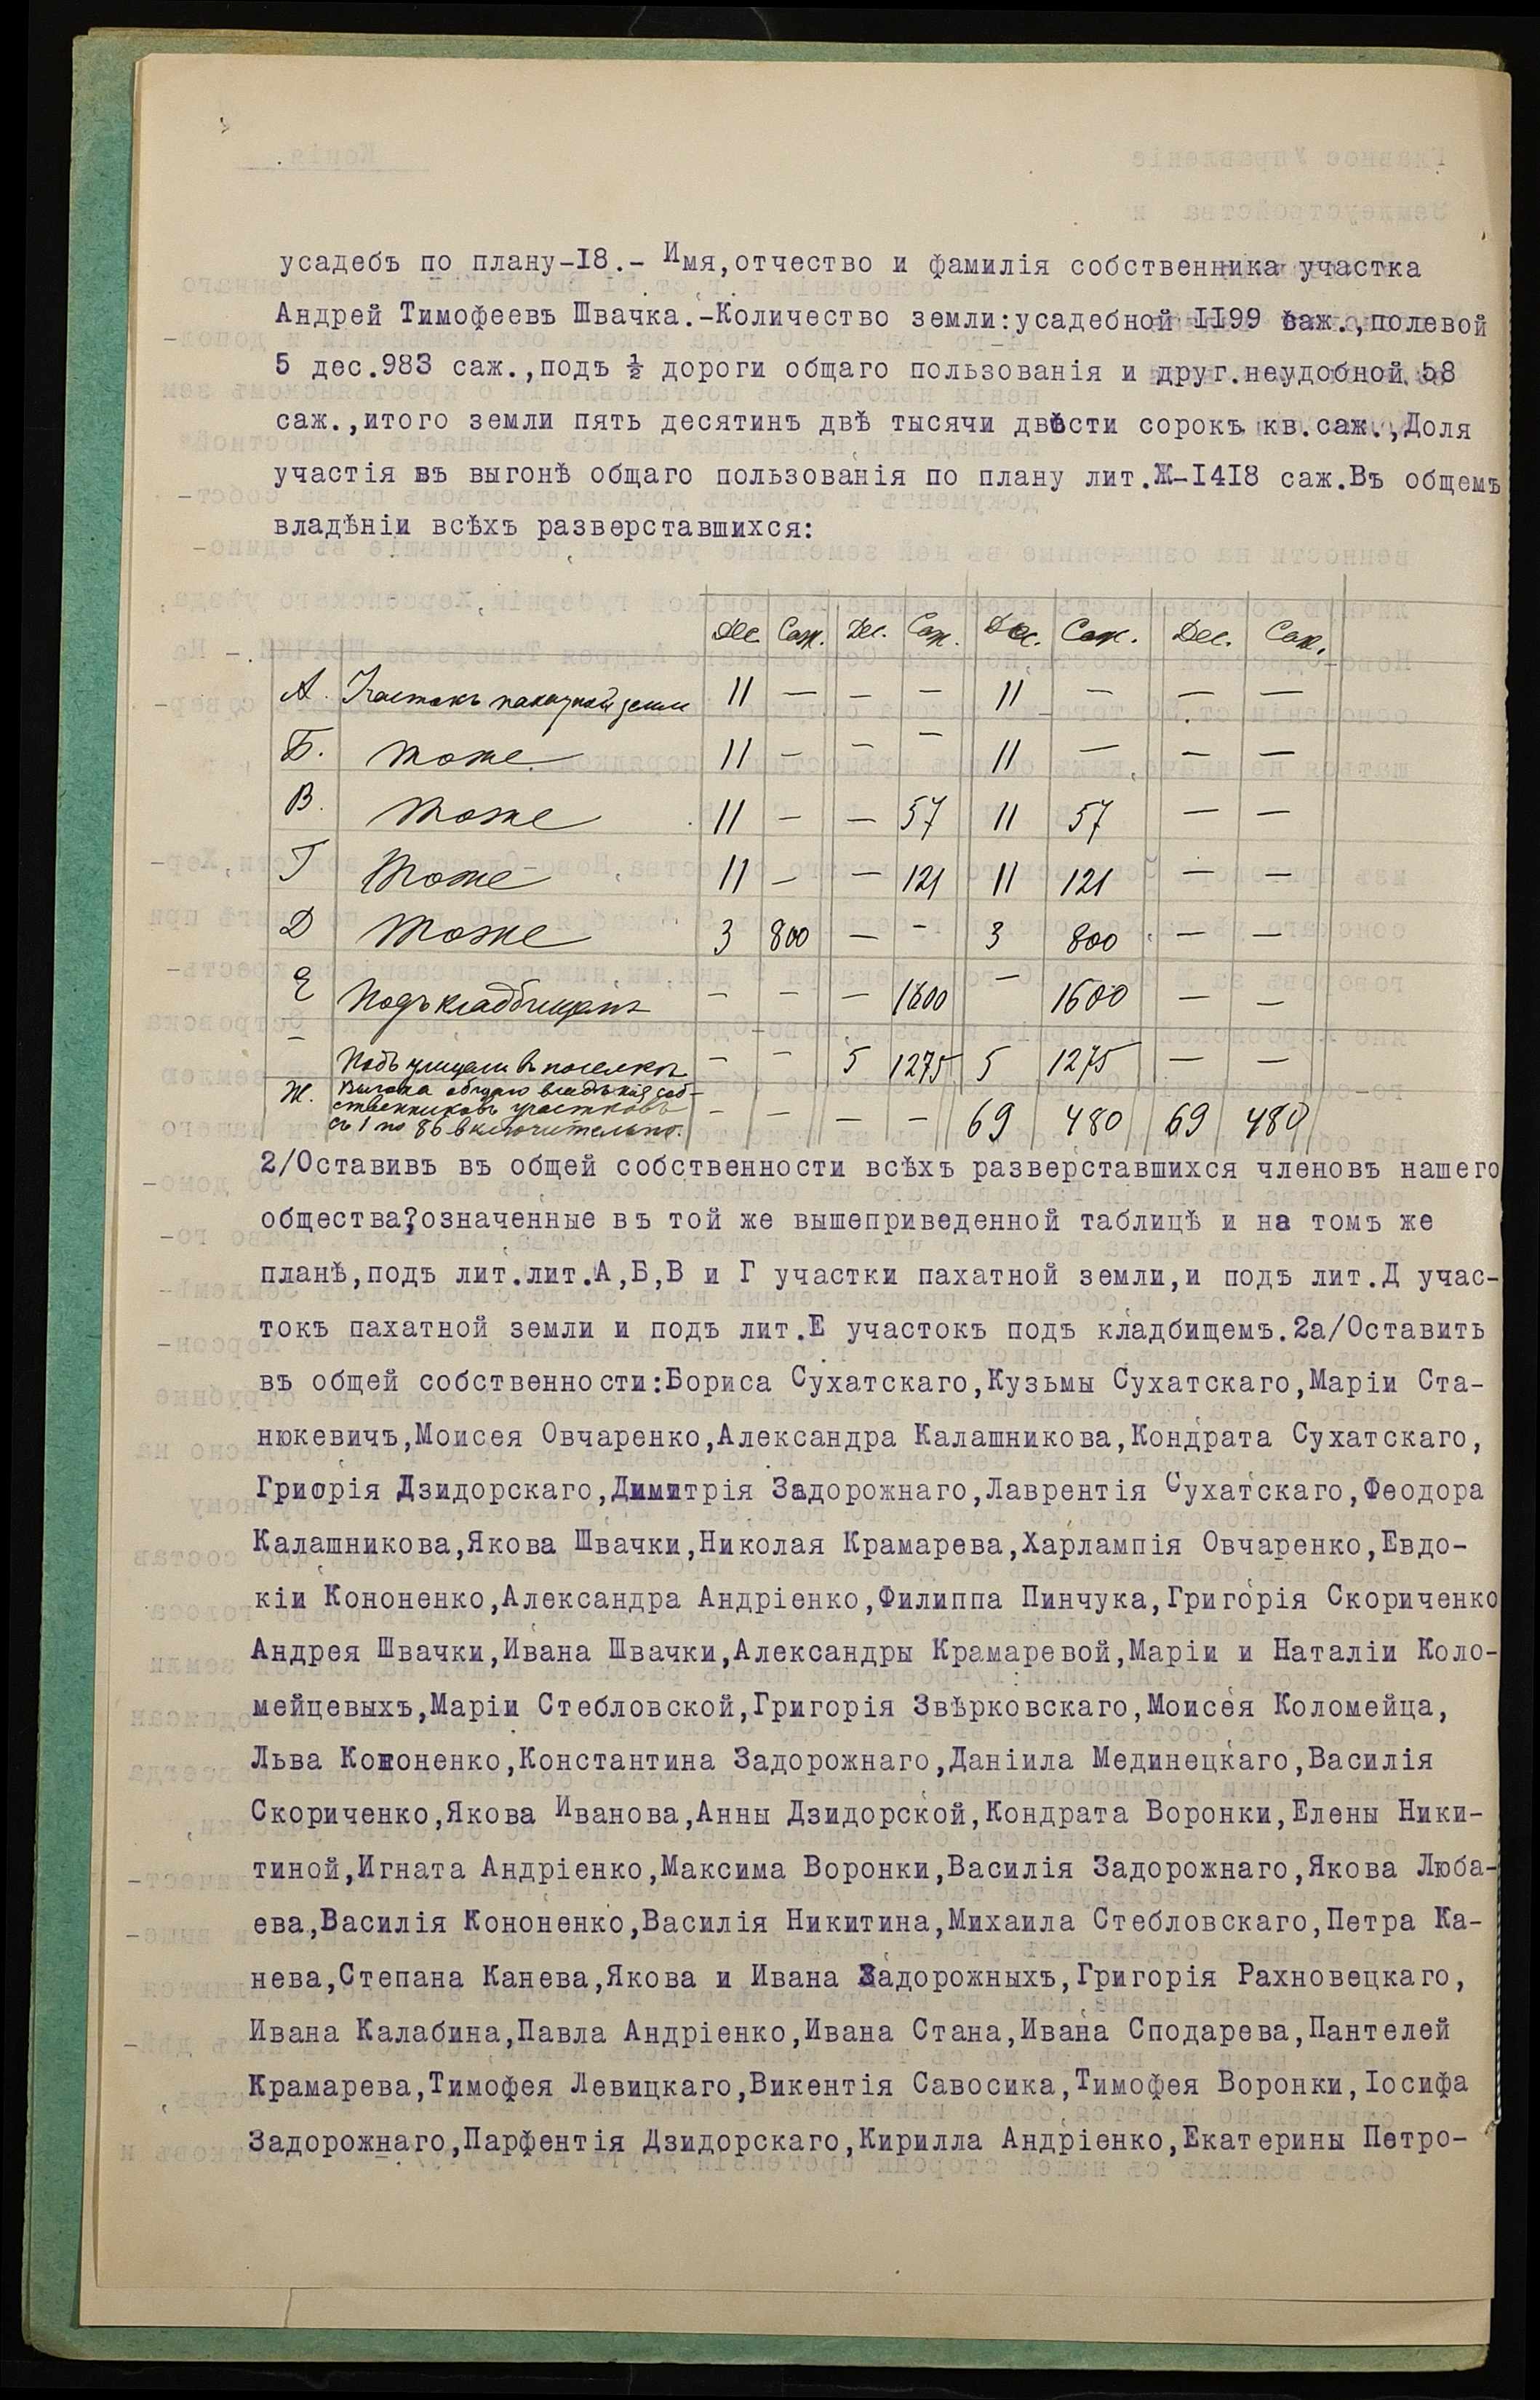 усадебъ по плану-I8.- Имя,отчество и фамилія собственника участка
Андрей Тимофеевъ Швачка.-Количество земли:усадебной II99 саж.,полевой
5 дес.983 саж.,подъ ½ дороги общаго пользованія и друг.неудобной 58
саж.,итого земли пять десятинъ двѣ тысячи двѣсти сорокъ кв.саж.,Доля
участія въ выгонѣ общаго пользованія по плану лит.Ж-I4I8 саж.Въ общемъ
владѣніи всѣхъ разверставшихся:
Дес. Саж. Дес. Саж. Дес. Саж. Дес. Саж.
А. Участокъ пахатной земли 11 — — — 11 — — —
Б. тоже 11 — — — 11 — — —
В. тоже 11 — — 57 11 57 — —
Г тоже 11 — — 121 11 121 — —
Д тоже 3 800 — — 3 800 — —
Е Подъ кладбищемъ — — — 1600 — 1600 — —
— Подъ улицами въ поселкѣ — — 5 1275 5 1275 — —
Ж. Выгона общаго владѣнія соб-
ственниковъ участковъ
съ 1 по 86 включительно. — — — — 69 480 69 480
2/Оставивъ въ общей собственности всѣхъ разверставшихся членовъ нашего
общества?означенные въ той же вышеприведенной таблицѣ и на томъ же
планѣ,подъ лит.лит.А,Б,В и Г участки пахатной земли,и подъ лит.Д учас-
токъ пахатной земли и подъ лит.Е участокъ подъ кладбищемъ.2а/Оставить
въ общей собственности:Бориса Сухатскаго,Кузьмы Сухатскаго,Маріи Ста-
нюкевичъ,Моисея Овчаренко,Александра Калашникова,Кондрата Сухатскаго,
Григорія Дзидорскаго,Димитрія Задорожнаго,Лаврентія Сухатскаго,Феодора
Калашникова,Якова Швачки,Николая Крамарева,Харлампія Овчаренко,Евдо-
кіи Кононенко,Александра Андріенко,Филиппа Пинчука,Григорія Скориченко
Андрея Швачки,Ивана Швачки,Александры Крамаревой,Маріи и Наталіи Коло-
мейцевыхъ,Маріи Стебловской,Григорія Звѣрковскаго,Моисея Коломейца,
Льва Кононенко,Константина Задорожнаго,Даніила Мединецкаго,Василія
Скориченко,Якова Иванова,Анны Дзидорской,Кондрата Воронки,Елены Ники-
тиной,Игната Андріенко,Максима Воронки,Василія Задорожнаго,Якова Люба-
ева,Василія Кононенко,Василія Никитина,Михаила Стебловскаго,Петра Ка-
нева,Степана Канева,Якова и Ивана Задорожныхъ,Григорія Рахновецкаго,
Ивана Калабина,Павла Андріенко,Ивана Стана,Ивана Сподарева,Пантелей
Крамарева,Тимофея Левицкаго,Викентія Савосика,Тимофея Воронки,Іосифа
Задорожнаго,Парфентія Дзидорскаго,Кирилла Андріенко,Екатерины Петро-